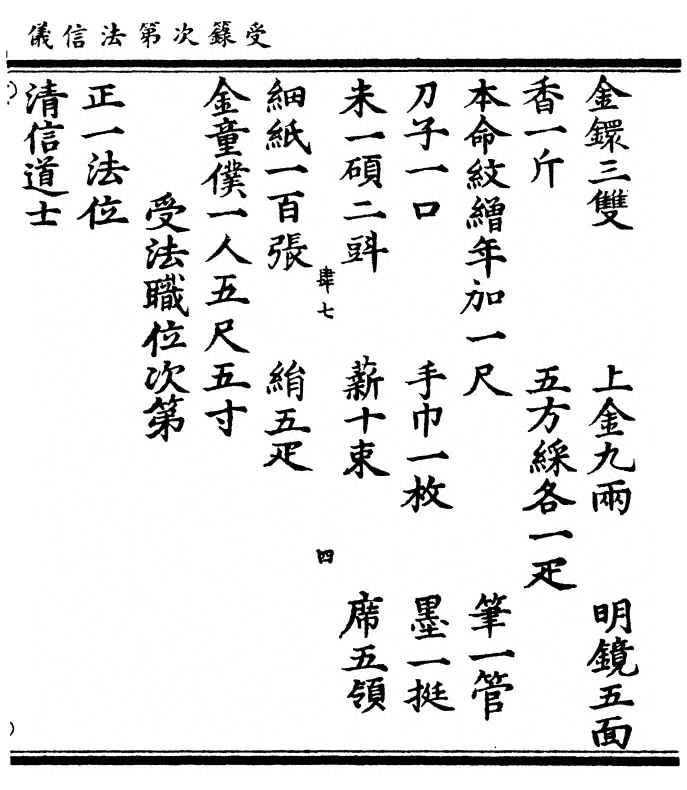 受籙次第法信儀
金鐶三雙　上金九兩　明鏡五面
香一斤　五方綵各一疋
本命紋繒年加一尺　筆一管
刀子一口　手巾一枚　墨一挺
米一碩二㪷　薪十束　席五領
肆七　四
細紙一百張　絹五疋
金童僕一人五尺五寸
受法職位次第
正一法位
清信道士